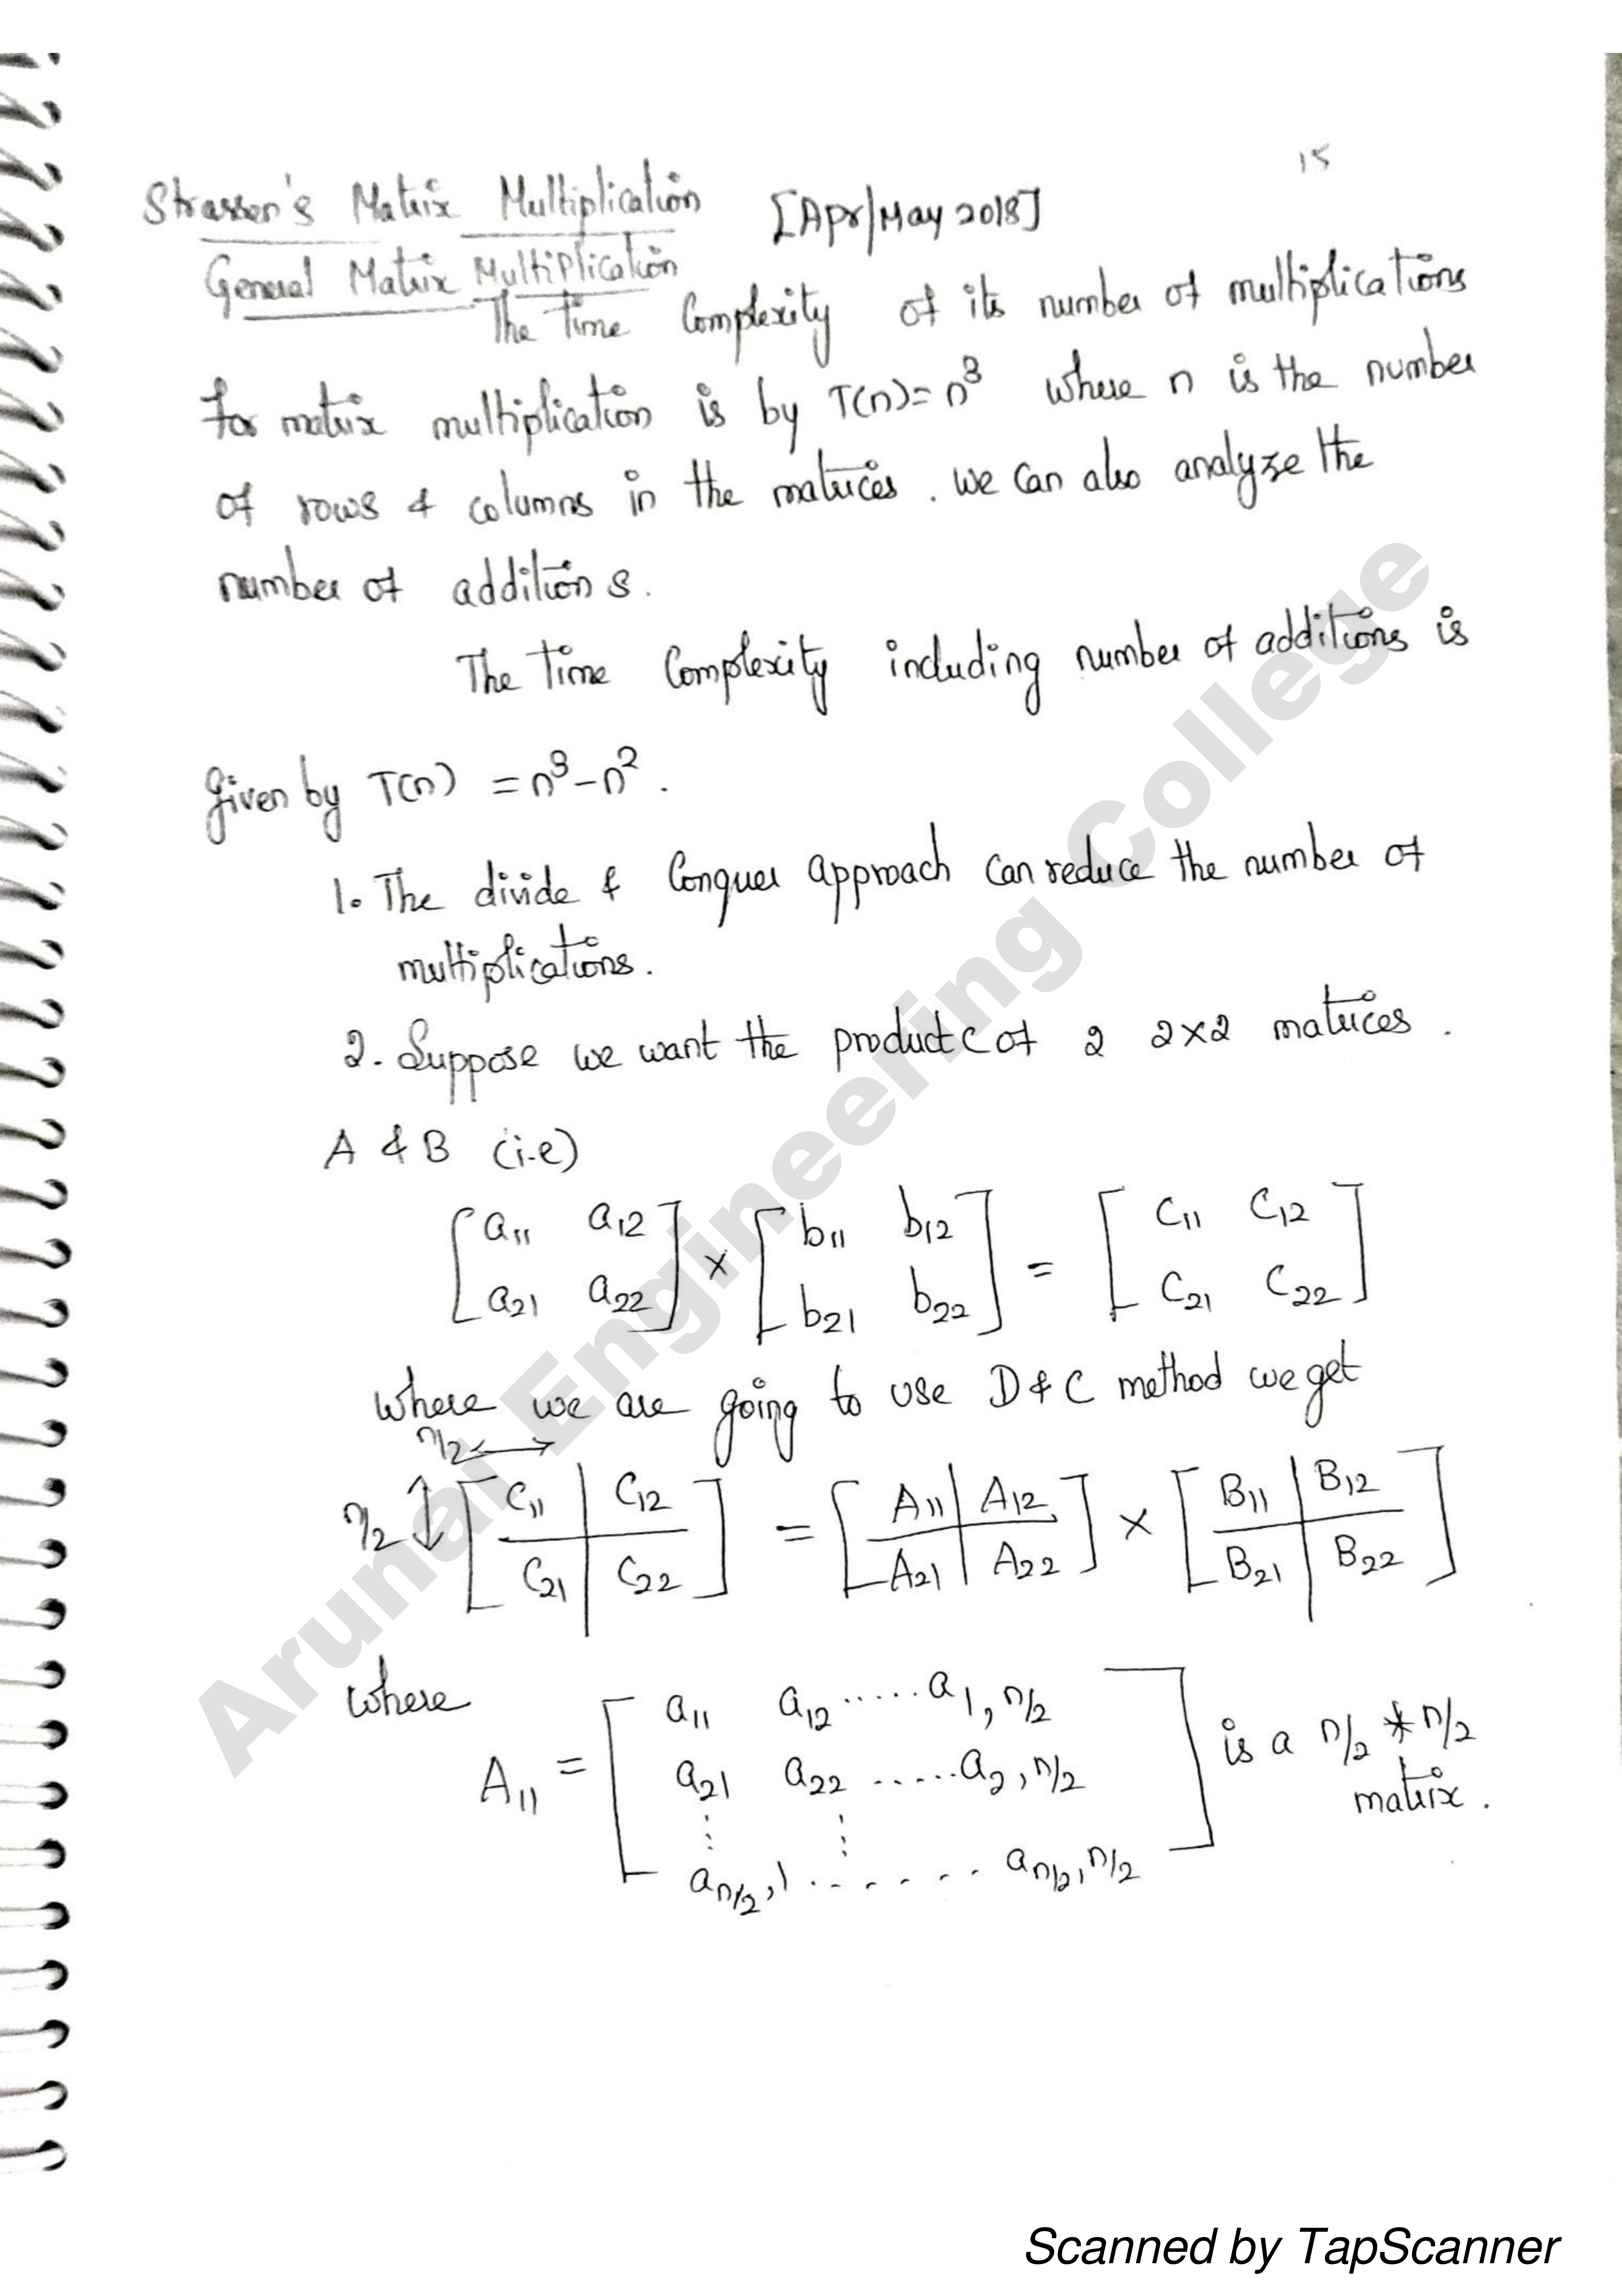 15
Strassen's Matrix Multiplication [Apr/May 2018]
General Matrix Multiplication
The Time Complexity of its number of multiplications
for matrix multiplication is by T(n)= n³ where n is the number
of rows & columns in the matrices. we can also analyze the
number of additions.
The Time Complexity including number of additions is
given by T(n) = n³-n².
1. The divide & Conquer approach can reduce the number of
multiplications.
2. Suppose we want the product C of 2 2×2 matrices.
A & B (i.e)
[a11 a12] × [b11 b12] = [C11 C12]
[a21 a22] [b21 b22] [C21 C22]
where we are going to use D & C method we get
n/2 ↔
n/2 ↕ [C11 | C12] = [A11 | A12] × [B11 | B12]
[C21 | C22] [A21 | A22] [B21 | B22]
where
A11 = [a11 a12 ..... a1,n/2] is a n/2 * n/2
[a21 a22 ..... a2,n/2] matrix.
⋮ ⋮
[an/2,1 ....... an/2,n/2]
Arunai Engineering College
Scanned by TapScanner